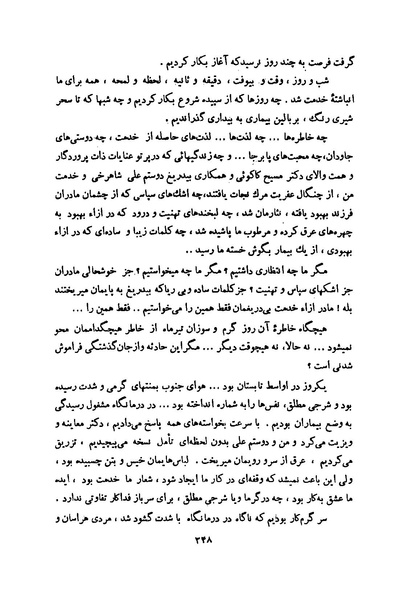 گرفت فرصت به چند روز نرسیدکه آغاز بکار کردیم .
شب و روز ، وقت و بیوقت ، دقیقه و ثانیه ، لحظه و لمحه ، همه برای ما
انباشتهٔ خدمت شد . چه روزها که از سپیده شروع بکار کردیم و چه شبها که تا سحر
شیری رنگ ، بر بالین بیماری به بیداری گذراندیم .
چه خاطره‌ها ... چه لذت‌ها ... لذت‌های حاصله از خدمت ، چه دوستی‌های
جاودان، چه محبت‌های پابرجا ... و چه زندگیهائی که در پرتو عنایات ذات پروردگار
و همت والای دکتر مسیح کاکوئی و همکاری بیدریغ دوستم علی شاهرخی ، و خدمت
من ، از چنگال عفریت مرگ نجات یافتند، چه اشک‌های سپاسی که از چشمان مادران
فرزند بهبود یافته ، نثارمان شد ، چه لبخندهای تهنیت و درود که در ازاء بهبود به
چهره‌های عرق کرده و مرطوب ما پاشیده شد ، چه کلمات زیبا و ساده‌ای که در ازاء
بهبودی ، از یک بیمار بگوش خسته ما رسید ..
مگر ما چه انتظاری داشتیم ؟ مگر ما چه میخواستیم ؟ جز خوشحالی مادران
جز اشکهای سپاس و تهنیت ؟ جزکلمات ساده وبی ریاکه بیدریغ به پایمان میریختند
بله ! مادر ازاء خدمت بی‌دریغمان فقط همین را می‌خواستیم .. فقط همین را ...
هیچگاه خاطرهٔ آن روز گرم و سوزان تیرماه از خاطر هیچگداممان محو
نمیشود ... نه حالا، نه هیچوقت دیگر ... مگراین حادثه وازجان‌گذشتگی فراموش
شدنی است ؟
یکروز در اواسط تابستان بود ... هوای جنوب بمنتهای گرمی و شدت رسیده
بود و شرجی مطلق، نفس‌ها را به شماره انداخته بود ... در درمانگاه مشغول رسیدگی
به وضع بیماران بودیم . با سرعت بخواسته‌های همه پاسخ می‌دادیم ، دکتر معاینه و
ویزیت می‌کرد و من و دوستم علی بدون لحظه‌ای تأمل نسخه می‌پیچیدیم ، تزریق
می‌کردیم ، عرق از سر و رویمان میریخت . لباس‌هایمان خیس و بتن چسبیده بود ،
ولی این باعث نمیشد که وقفه‌ای در کار ما ایجاد شود ، شعار ما خدمت بود ، ایده
ما عشق به‌کار بود ، چه درگرما ویا شرجی مطلق ، برای سرباز فداکار تفاوتی ندارد .
سر گرم‌کار بودیم که ناگاه در درمانگاه با شدت گشود شد ، مردی هراسان و
۲۴۸